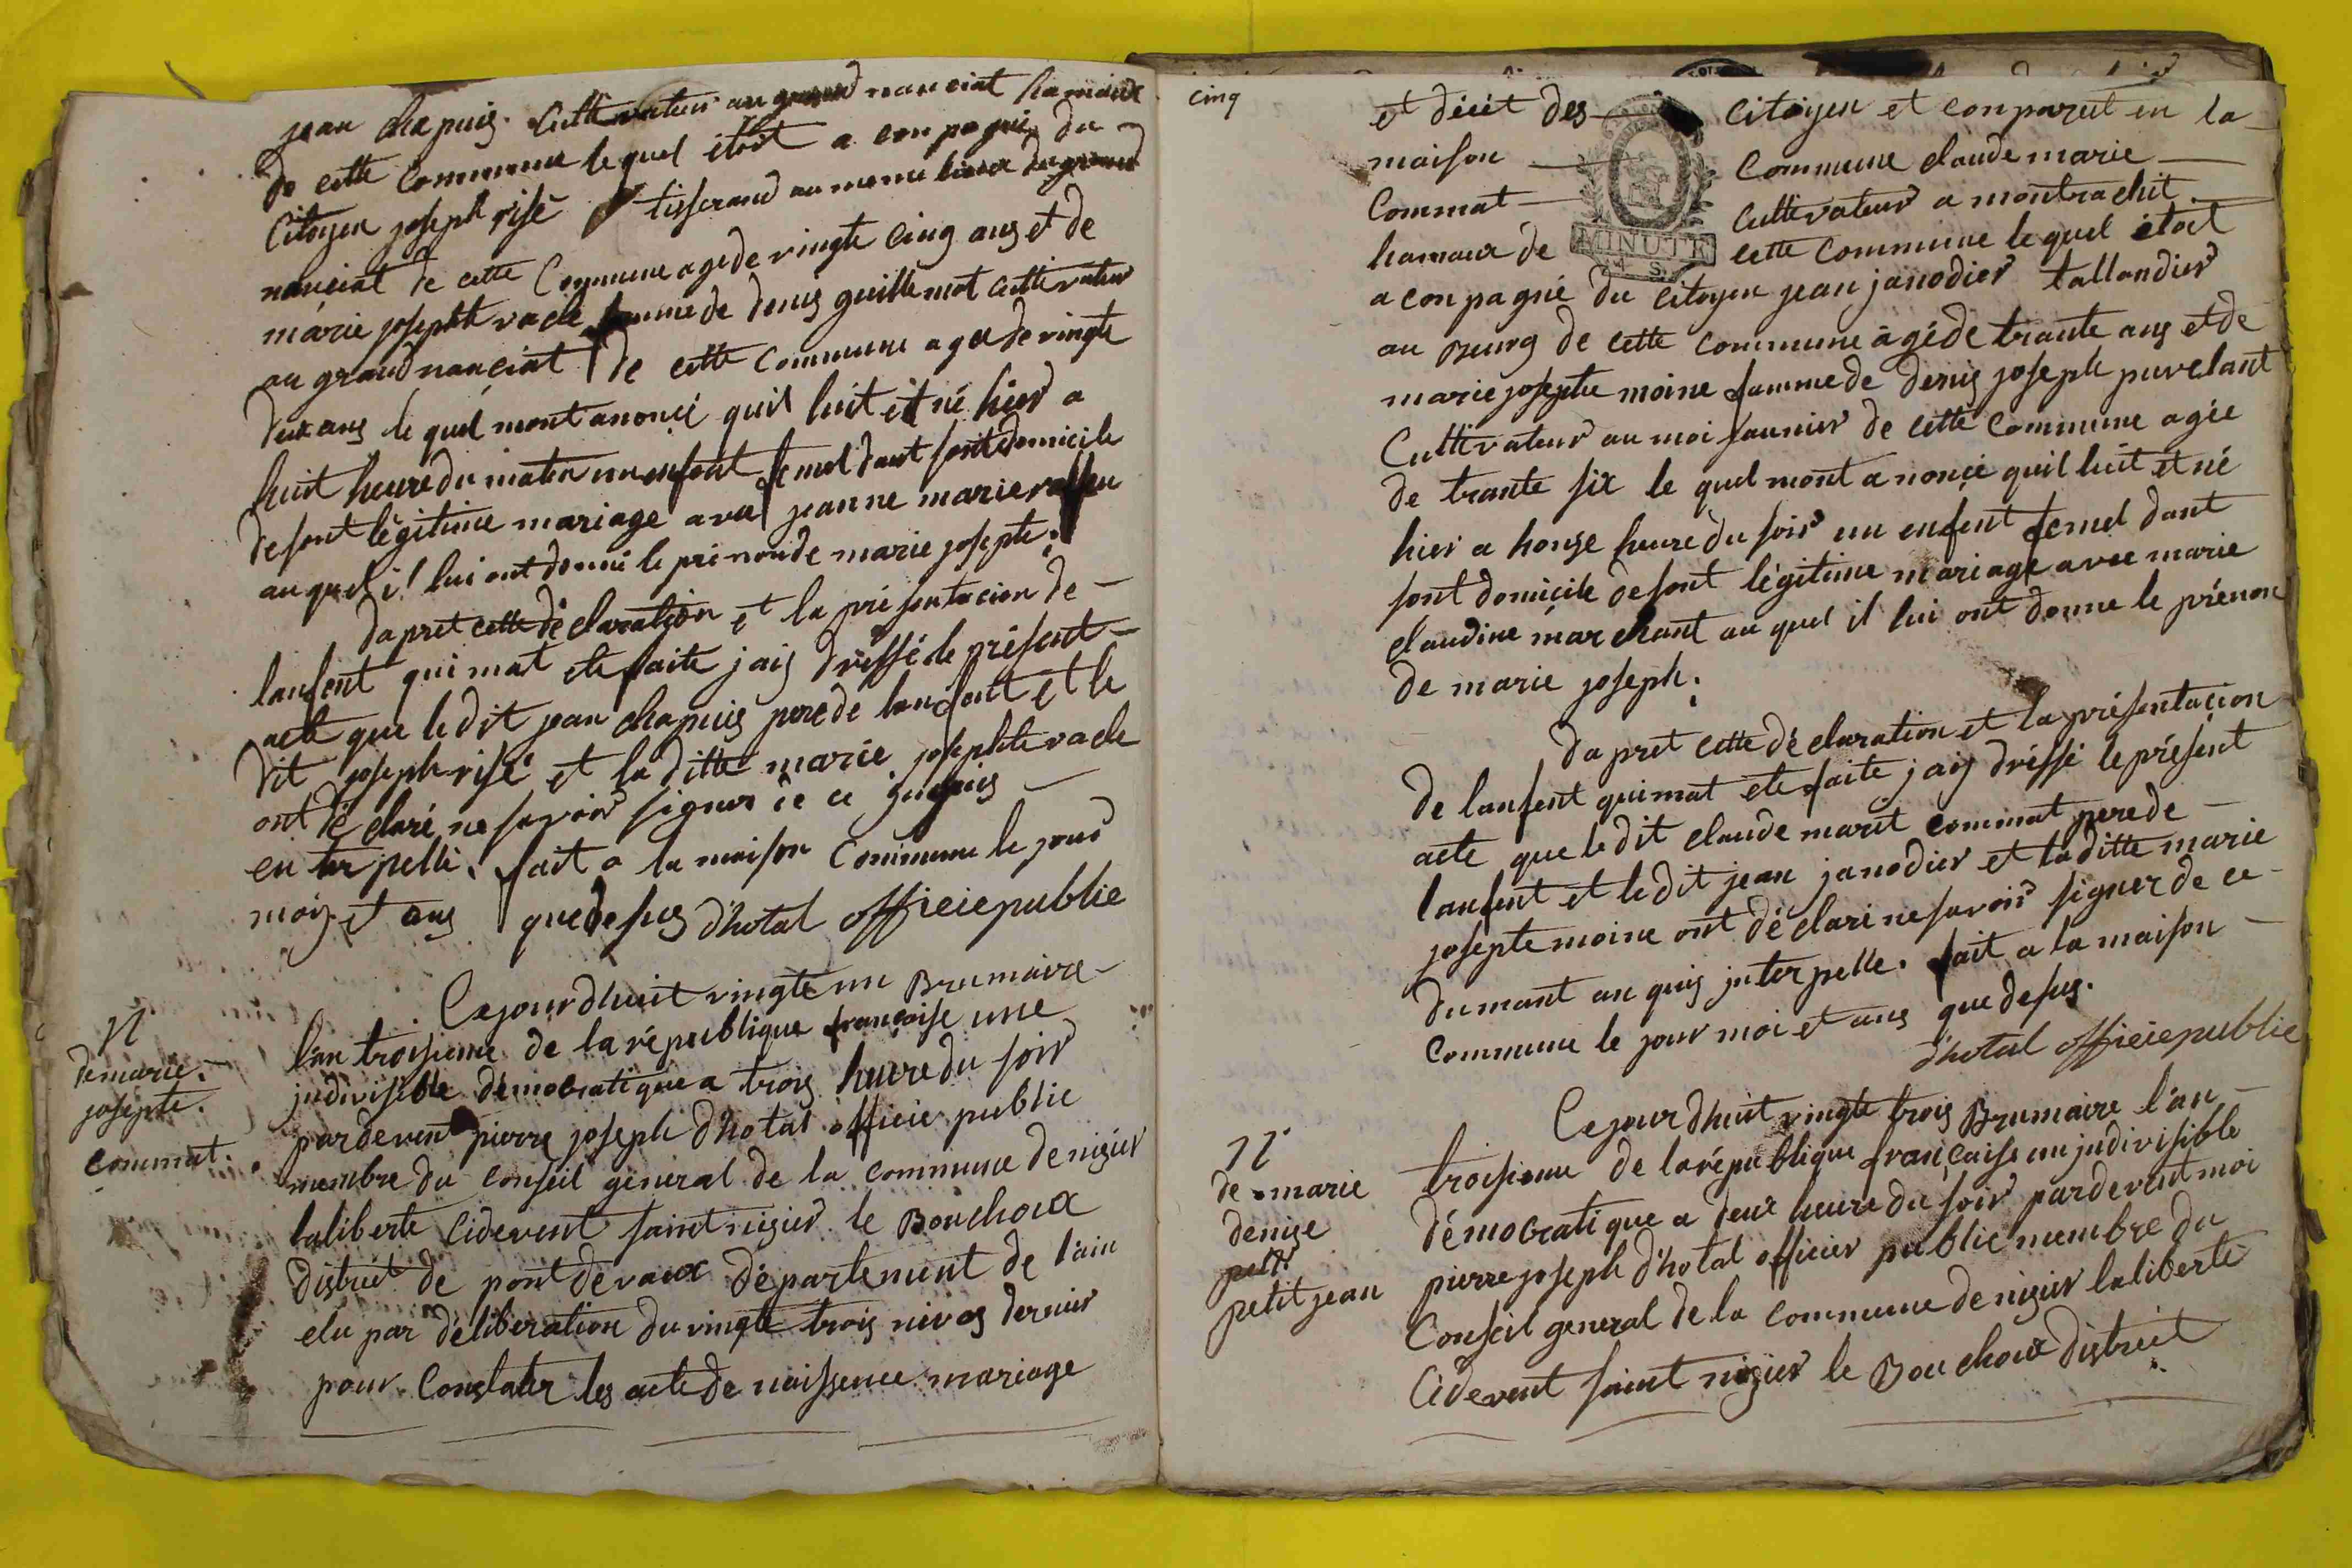 jean chapuis. Cultivateur au grand nanciat hamaux
de cette Commune le quel étoit a conpagnié du
Citoyen joseph risé tisserand au meme lieux du grand
nanciat de cette Commune age de vingte cinq ans et de
marie josephte vacle famme de denis guillemot cultivateur
au grand nanciat de cette Commune agee de vingte
deux ans le quel mont anoncé quil luit ét né hier a
huit heure du matin un enfent femel dant sont domicile
de sont légitime mariage avec jeanne marie
au quel il lui ont donné le prénon de marie josepte.
dapret cette déclaration et la présentacion de
lanfent qui mat ete faite jais dréssé le présent
acte que le dit jean chapuis pere de lanfent et le
dit joseph risé et la ditte marie josephte vacle
ont déclaré ne savoir signer de ce
en ter pellé. fait a la maison Commune le jour
mois et ans que desus d'hotal officiepublic
N
de marie.
josepte.
commat.
Cejourdhuit vingte un Brumaire
l'an troisieme de la république françaisse une
jndivisible démocratique a trois heure du soir
pardevent pierre joseph d'hotal officie public
membre du conseil géneral de la commune de nisier
laliberte cidevent saint nisier le Bouchoux
district de pont de vaux département de l'ain
elu par déliberation du vingte trois nivos dernier
pour Constater les acte de naissence mariage
cinq
et décét des citoyen et conparut en la
maison Commune claude marie
Commat Cultivateur a montrachit
hamaux de cette Commune le quel étoit
MINUTE
4 S.
a conpagné du citoyen jean janodier tallandier
au Bourg de cette commune âgé de trante ans et de
marie josephte moine famme de denis joseph puvelant
Cultivateur au moi saunier de cette commune agée
de trante six le quel mont anoncé quil luit ét né
hier a honze heure du soir un enfent femel dant
sont domicile de sont légitime mariage avec marie
claudine marchant au quel il lui ont donne le prénon
de marie joseph.
dapret cette déclaration et la présentacion
de lanfent quimat ete faite jais dréssé le présent
acte que le dit claude marit commat pere de
lanfent et le dit jean janodier et la ditte marie
josepte moine ont déclaré ne savoir signer de ce
dumant au quis jnterpelle. fait a la maison
commune le jour moi et ans que desus.
d'hotal officiepublic
N
de marie
denise
petit jean
Cejourdhuit vingte trois Brumaire l'an
troisieme de la république françaisse un jndivisible
démocratique a deux heure du soir pardevent moi
pierre joseph d'hotal officier public membre du
Conseil general de la commune de nisier laliberté
Cidevent saint nisier le Bouchoux district